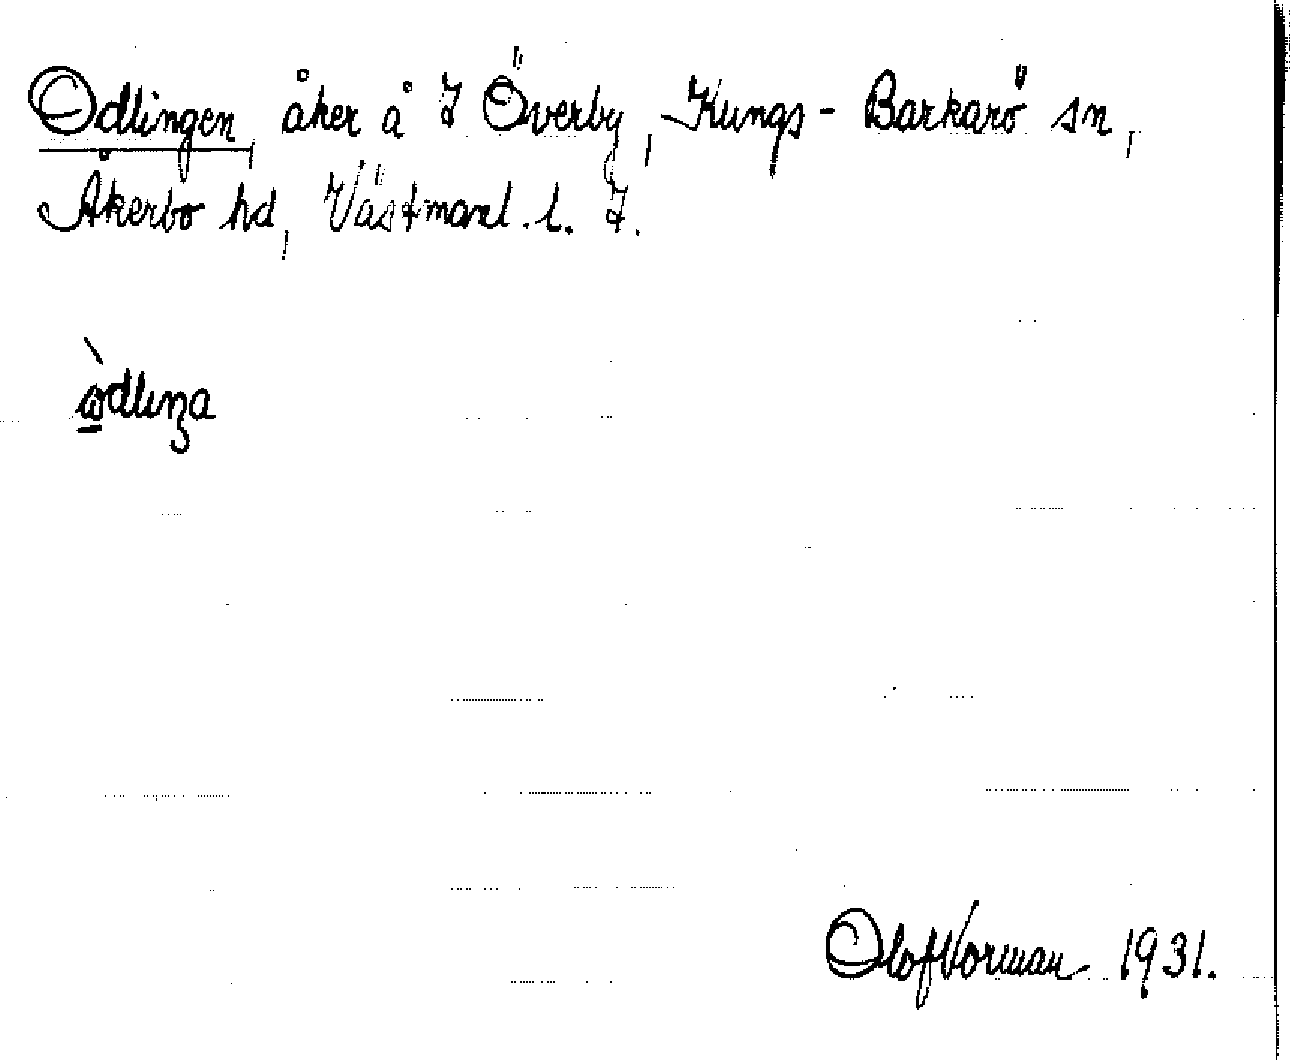 Odlingen, åker å I Överby, Kungs-Barkarö sn,
Åkerbo hd, Västmanl. l. I.
Olof Norman 1931.